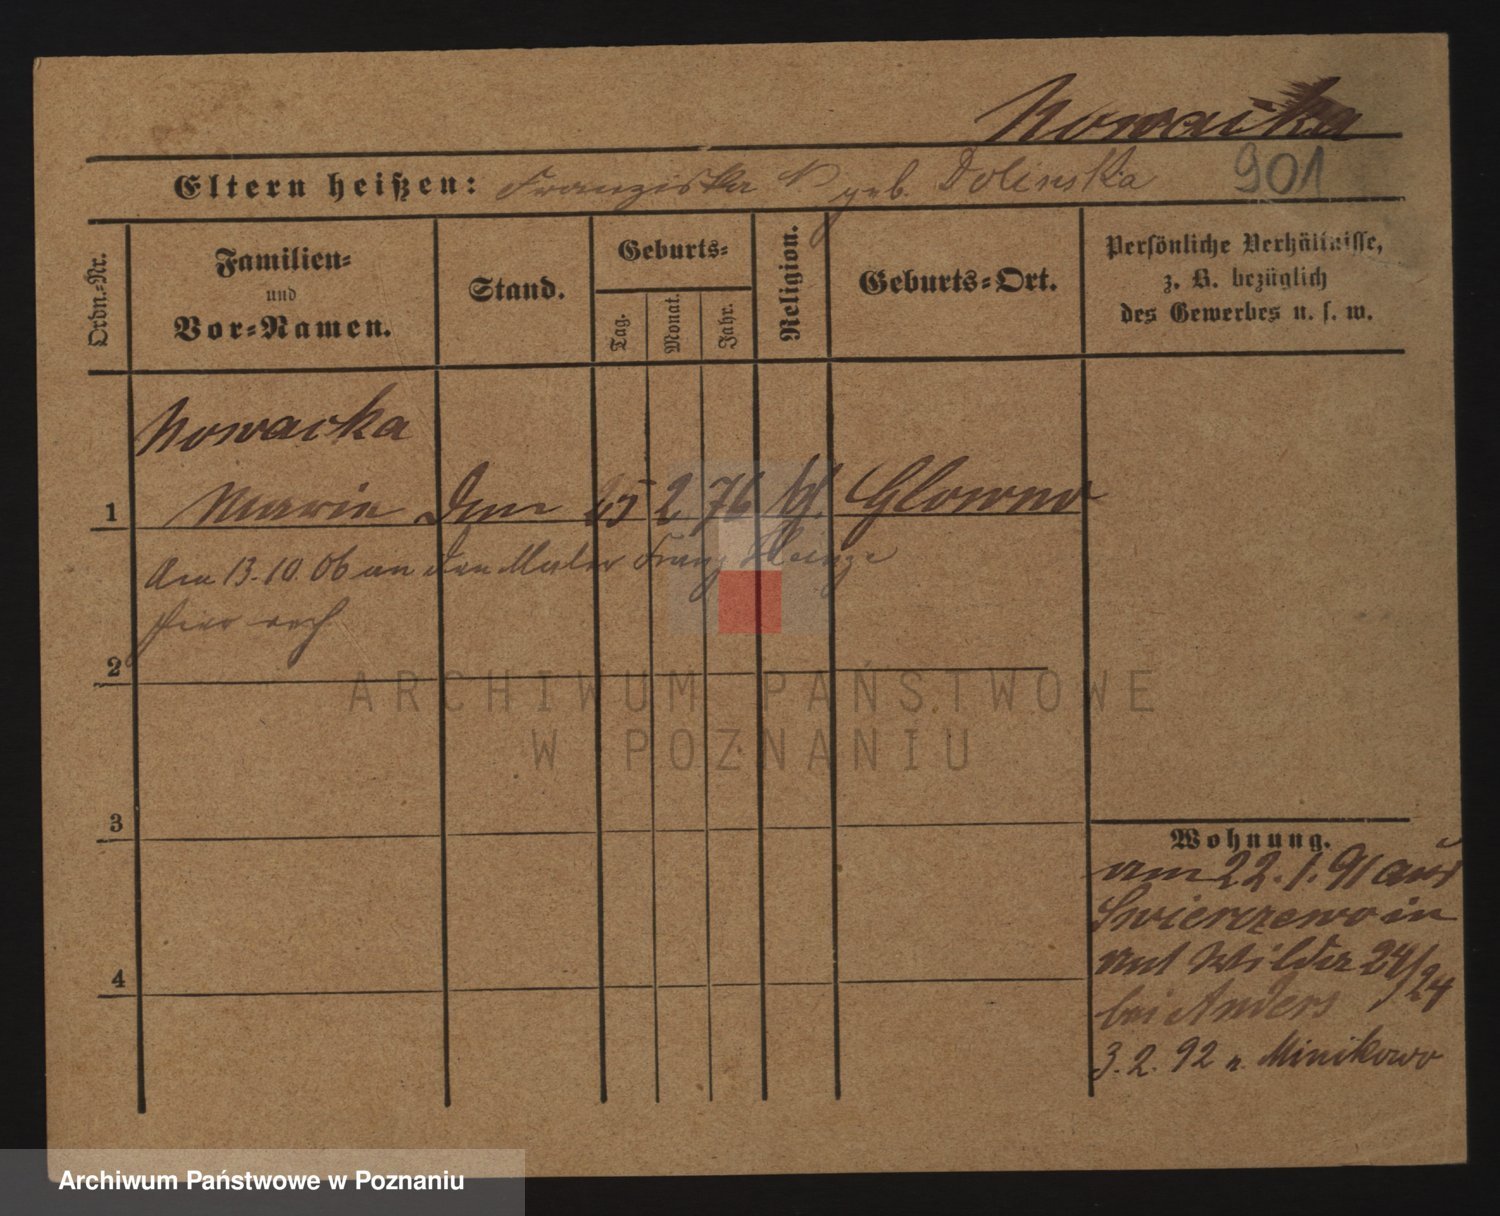 Nowacka
Eltern heißen: Franziska N. geb. Dolinska 901
Ordn.-Nr.
Familien-
und
Vor-Namen.
Stand.
Geburts-
Tag. Monat. Jahr.
Religion.
Geburts-Ort.
Persönliche Verhältnisse,
z. B. bezüglich
des Gewerbes u. s. w.
Nowacka
1 Marie 2 76 Glowno
Am 13.10.06 an den Maler Franz
2 hier
3
4
Wohnung.
am 22.1.91 aus
Swierczewo in
Wilda 24/24
bei Anders
3.2.92 n. Minikowo
ARCHIWUM PAŃSTWOWE
W POZNANIU
Archiwum Państwowe w Poznaniu